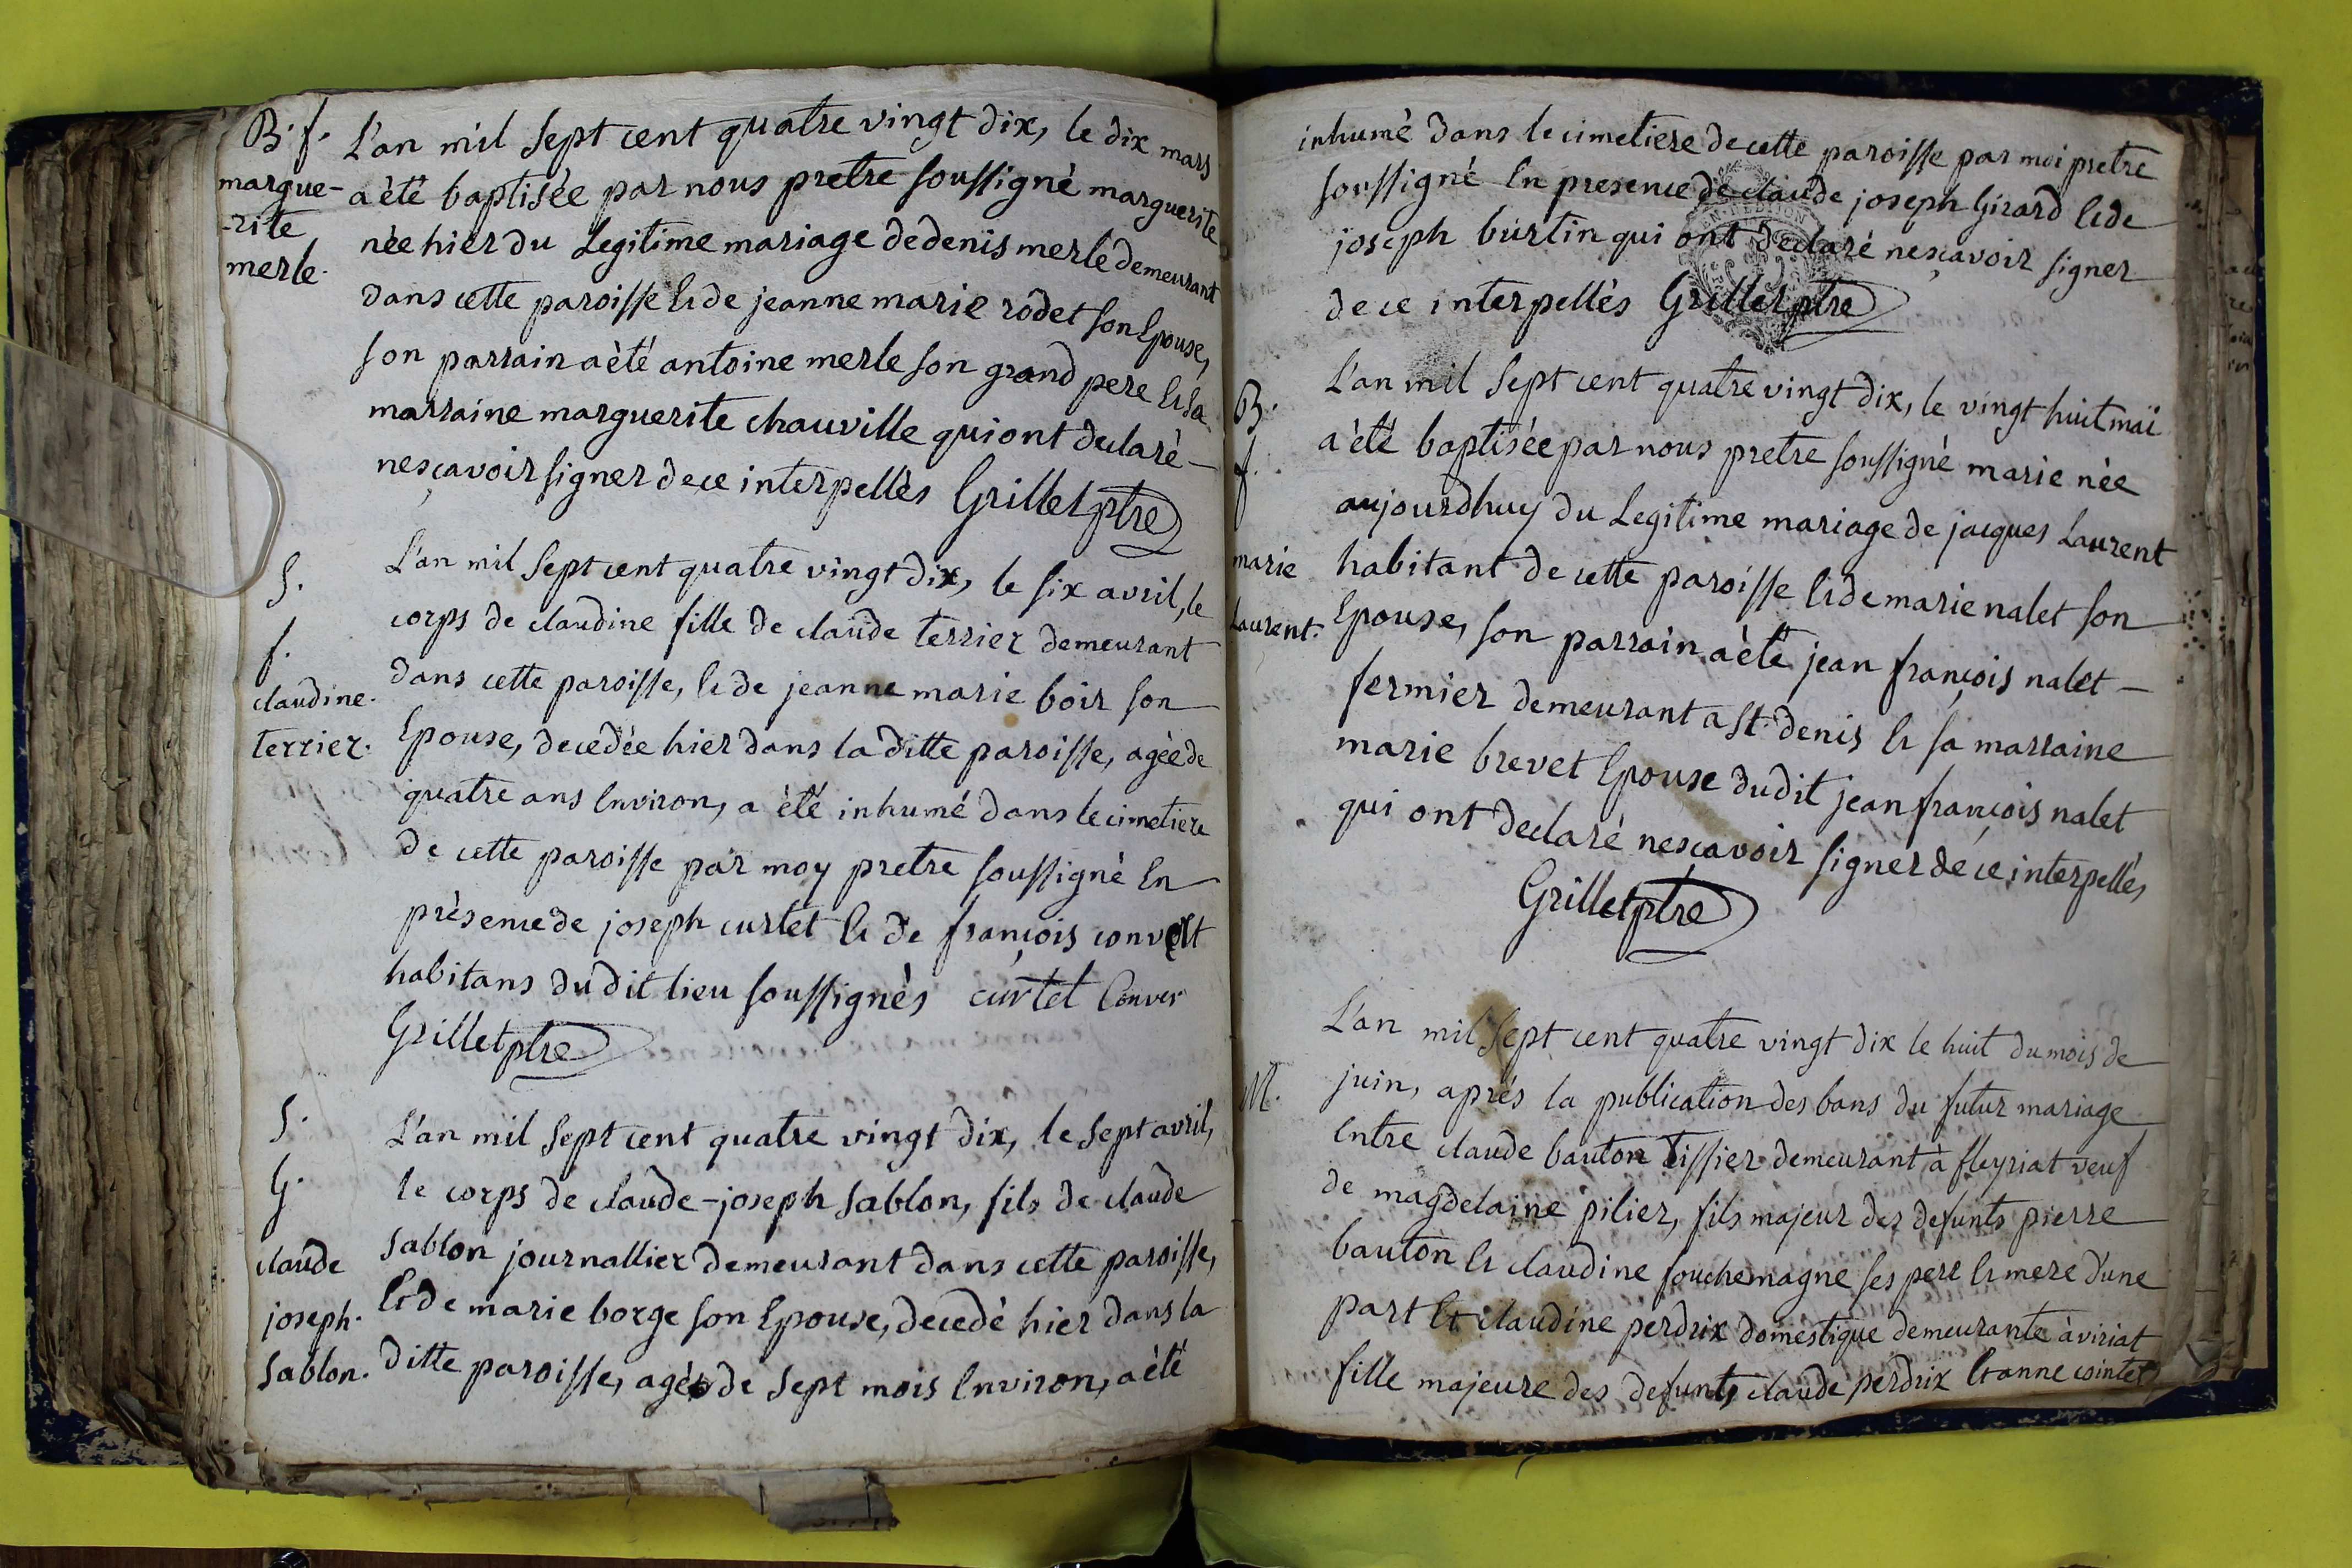 B. f.
margue-
-rite
merle.
L'an mil sept cent quatre vingt dix, le dix mars
a èté baptisée par nous pretre soussigné marguerite
nèe hier du Legitime mariage de denis merle demeurant
dans cette paroisse & de jeanne marie rodet son Epouse,
son parrain a èté antoine merle son grand pere & sa
marraine marguerite chauville qui ont declaré -
ne sçavoir signer de ce interpellès Grillet ptre
S.
f.
claudine.
terrier.
L'an mil sept cent quatre vingt dix, le six avril, le
corps de claudine fille de claude terrier demeurant
dans cette paroisse, & de jeanne marie boir son
Epouse, decedée hier dans la ditte paroisse, agèe de
quatre ans Environ, a èté inhumé dans le cimetiere
de cette paroisse par moy pretre soussigné En
prèsence de joseph curtet & de françois convert
habitans dudit lieu soussignès curtet Conver
Grillet ptre
S.
G.
claude
joseph.
Sablon.
L'an mil sept cent quatre vingt dix, le sept avril,
le corps de claude-joseph Sablon, fils de claude
Sablon journallier demeurant dans cette paroisse,
& de marie borge son Epouse, decedé hier dans la
ditte paroisse, agé de sept mois Environ, a èté
inhumè dans le cimetiere de cette paroisse par moi pretre
soussigné En presence de claude joseph Girard & de
joseph burtin qui ont declaré ne sçavoir signer
de ce interpellès Grillet ptre
B.
f.
marie
Laurent.
L'an mil sept cent quatre vingt dix, le vingt huit mai
a èté baptisée par nous pretre soussigné marie nèe
aujourdhuy du Legitime mariage de jacques Laurent
habitant de cette paroisse & de marie nalet son
Epouse, son parrain a èté jean françois nalet -
fermier demeurant a St. denis & sa marraine
marie brevet Epouse dudit jean françois nalet
qui ont declaré ne sçavoir signer de ce interpellés
Grillet ptre
M.
L'an mil sept cent quatre vingt dix le huit du mois de
juin, aprés la publication des bans du futur mariage
Entre claude bauton tissier demeurant à fleyriat veuf
de magdelaine pilier, fils majeur des defunts pierre
bauton & claudine fouchemagne ses pere & mere d'une
part Et claudine perdrix domestique demeurante à viriat
fille majeure des defunts claude perdrix & anne cointet